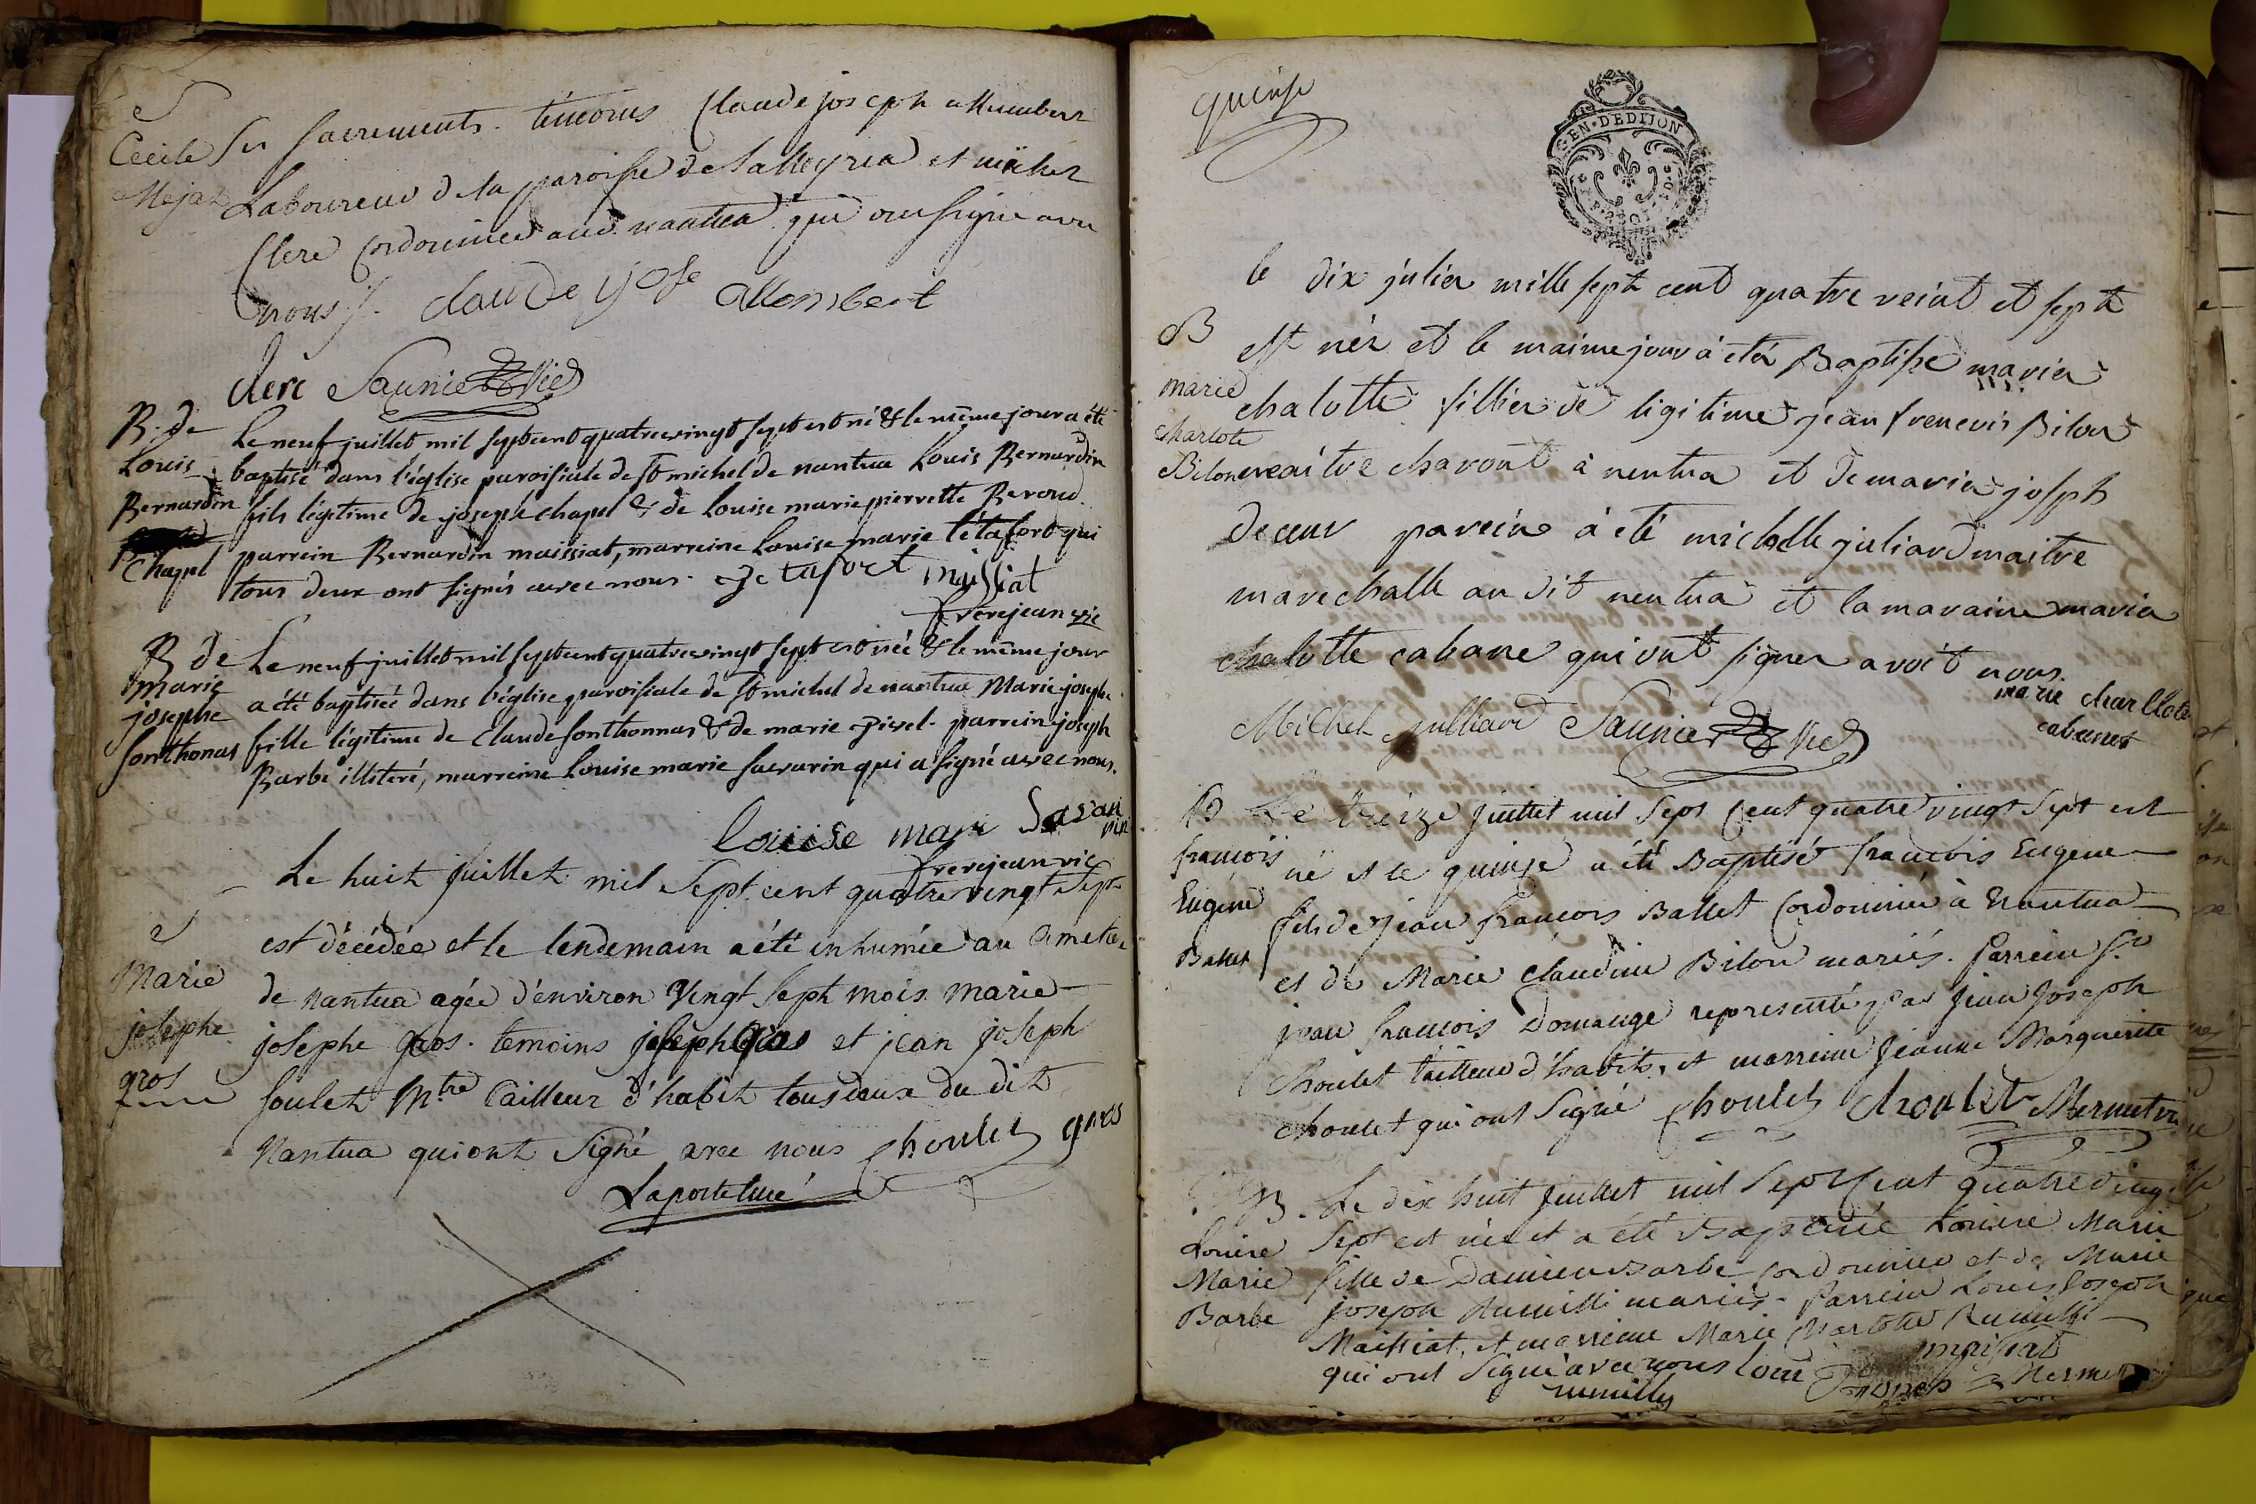 S
Cecile
Mejat
Ses sacrements. témoins Claude joseph allumbert
Laboureur de la paroisse de Salleyria et michel
Clerc Cordonnier aud. nantua qui ont signé avec
nous /. claude yose allombert
clerc Saunier Vic
B. de
Louis
Bernardin
Chapel
Le neuf juillet mil sept cent quatre vingt sept est né & le même jour a été
baptisé dans l'église paroissiale de St michel de nantua Louis Bernardin
fils légitime de joseph chapel & de Louise marie pierrette Beroud
parrein Bernardin maissiat, marreine Louise marie Létafort qui
tous deux ont signés avec nous. Letafort maissiat
frerejean vic
B de
marie
josephe
fonthonas
Le neuf juillet mil sept cent quatre vingt sept est née & le même jour
a été baptisée dans l'église paroissiale de St michel de nantua Marie josephe
fille légitime de claude fonthonnas & de marie Pivel. parrein joseph
Barbe illiteré, marreine Louise marie savarin qui a signé avec nous.
louise mari Savarin
frerejean vic
S
Marie
josephe
gros
Le huit juillet mil Sept cent quatre vingt Sept
est décédée et le lendemain a été inhumée au Cimetiere
de Nantua agée d'environ Vingt Sept mois marie
josephe gros. temoins joseph Gros et jean joseph
Soulet Mtre Tailleur d'habit tous deux du dit
Nantua qui ont Signé avec nous Choulet gros
Laporte Curé
quinze
GEN. DE DIJON
B
marie
charlote
Bilon
le dix julier mille sept cent quatre veint et sept
est née et le maime jour à eté Baptisse maria
chalotte fillier de ligitime jean frencois Bilon
meaitre charont à nentua et de maria josph
decuer parein à eté michelle juliard maitre
marechalle au dit nentua et la maraine maria
chalotte cabane qui ont signer avoit nous.
marie charllote
cabanet
Michel julliard Saunier Vic
B
françois
Eugene
Ballet
Le treize Juillet mil Sept Cent quatre vingt Sept est
né et le quinze a été Baptisé françois Eugene
fils de jean françois Ballet Cordonnier à Nantua
et de Marie claudine Bilon mariés. Parrein Sr
jean françois Domange representé par jean joseph
Choulet tailleur d'habits, et marreine Jeanne Marguerite
choulet qui ont Signé Choulet Choulet Mermet vic
B.
Louise
Marie
Barbe
Le dix huit juillet mil Sept Cent quatre vingt
Sept est née et a été Baptisée Louise Marie
fille de Damien Barbe cordonnier et de Marie
joseph Rumilli mariés. Parrein Louis Joseph
Maissiat, et marreine Marie Charlotte Rumilli
qui ont Signé avec nous Loui Joseph maissiat
rumilly Mermet vic